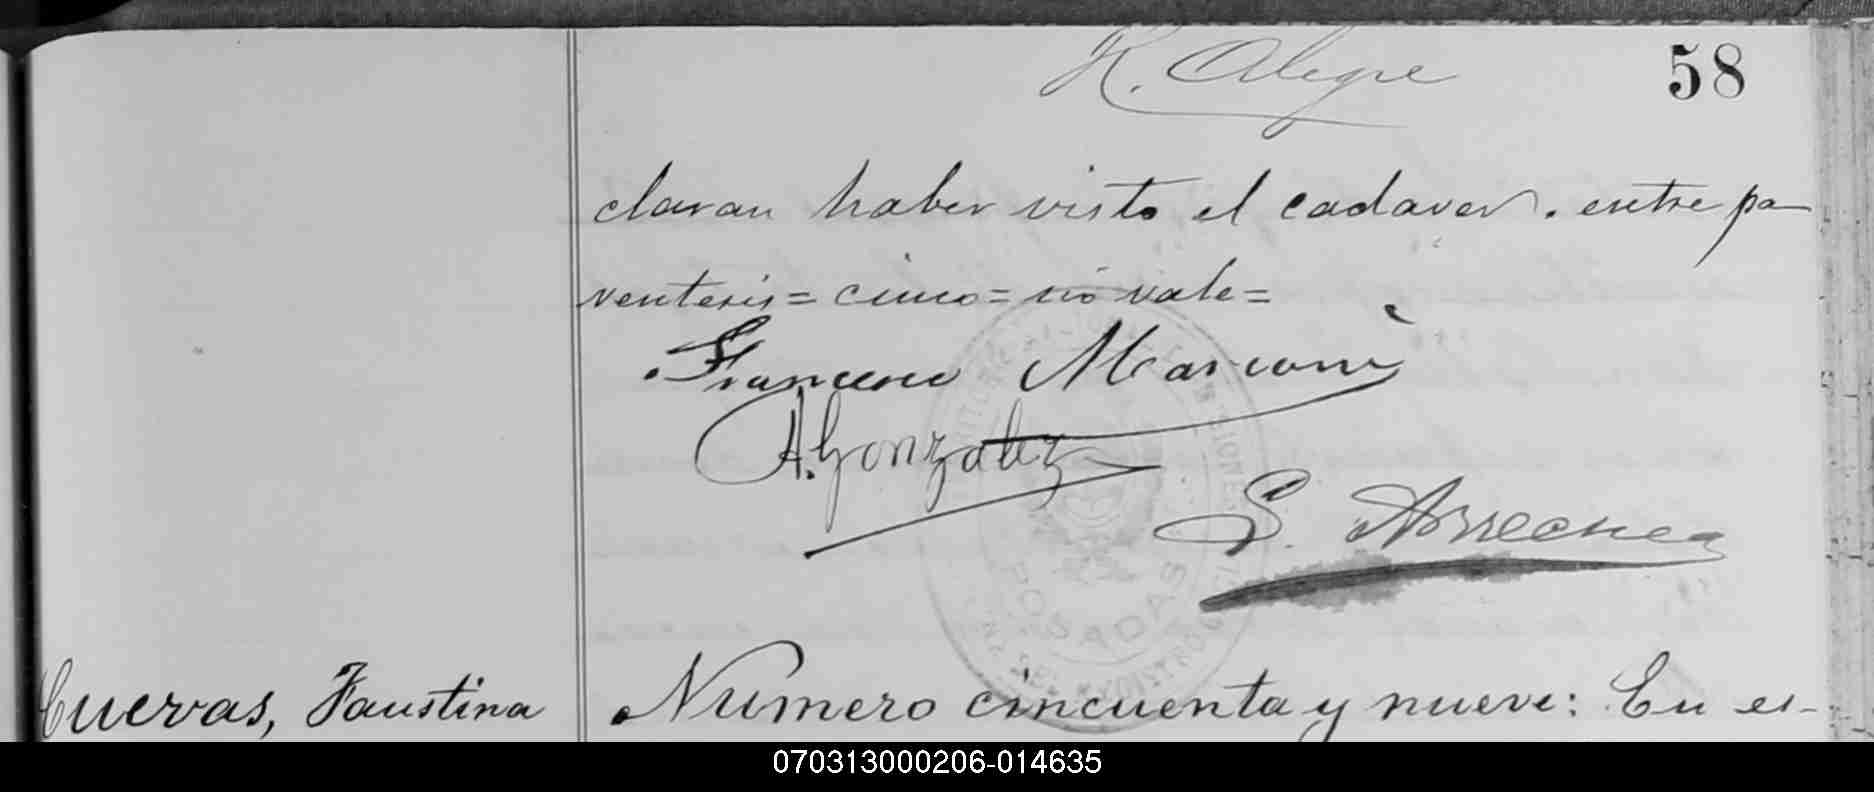 R. Alegre
58
claran haber visto el cadaver. entre pa-
rentesis = cinco = no vale =
Francisco Marconi
A. Gonzalez
S. Arrechea
POSADAS
Cuevas, Faustina
Numero cincuenta y nueve: En es-
070313000206-014635